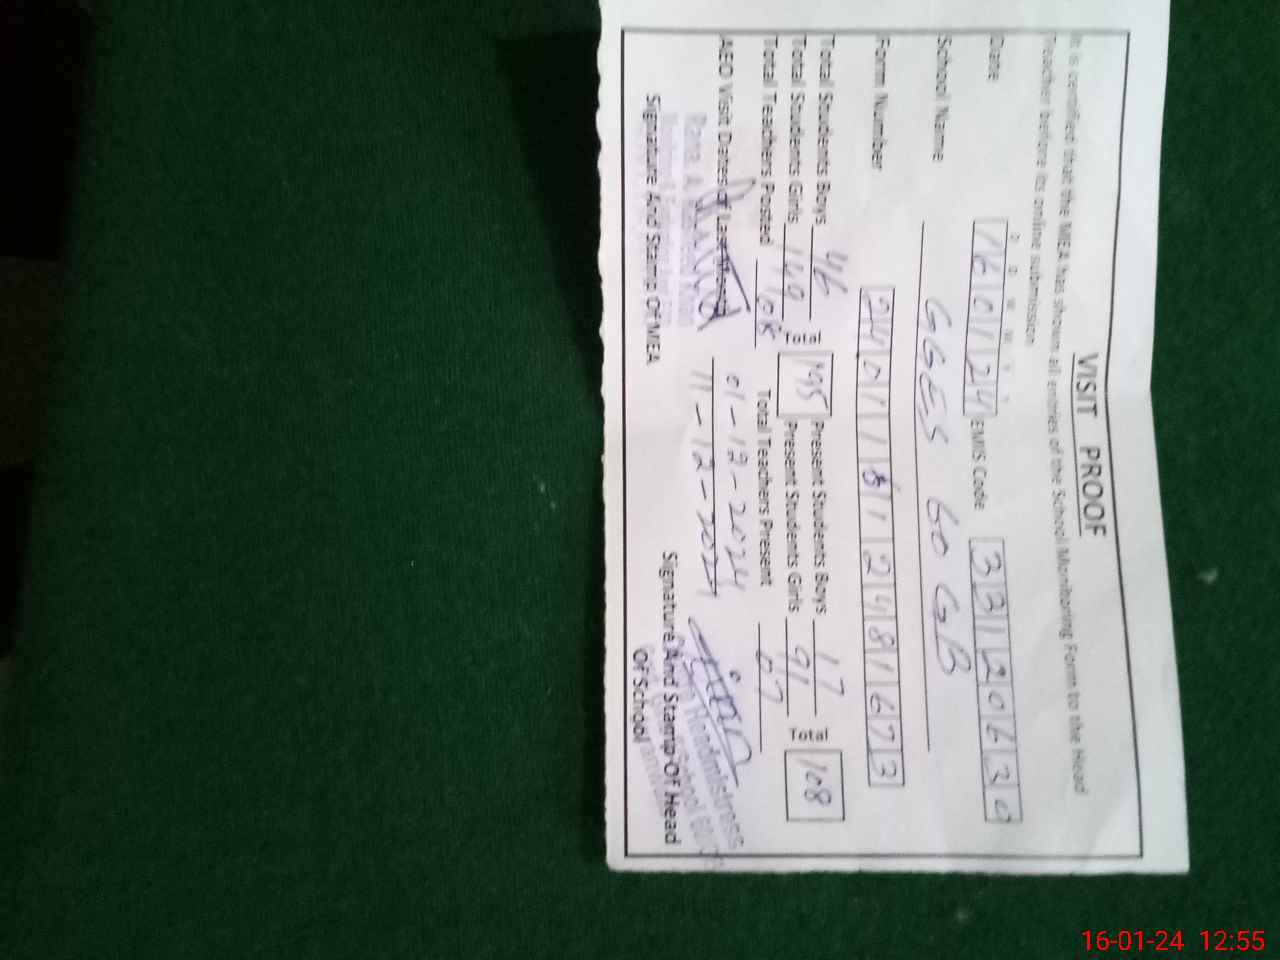 VISIT PROOF
It is certified that the MEA has shown all entries of the School Monitoring Form to the Head
Teacher before its online submission.
D D M M Y Y
Date 160124 EMIS Code 33120630
School Name GGES 60 GB
Form Number 240116112481673
Total Students Boys 46 Total Present Students Boys 17 Total
Total Students Girls 149 195 Present Students Girls 91 108
Total Teachers Posted 08 Total Teachers Present 07
AEO Visit Dates of Last Months 01-12-2024
11-12-2024
Signature And Stamp Of MEA
Signature And Stamp Of Head
Of School
Headmistress
16-01-24 12:55